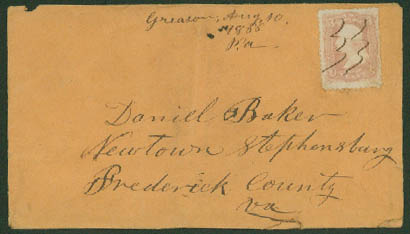 Greason, Aug 10.
1866
Pa
Daniel Baker
Newtown Stephensburg
Frederick County
Va